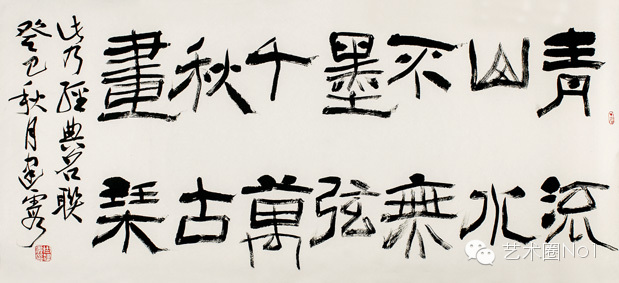 青山不墨千秋畫
流水無弦萬古琴
此乃經典名聯
癸巳秋月
艺术圈No1